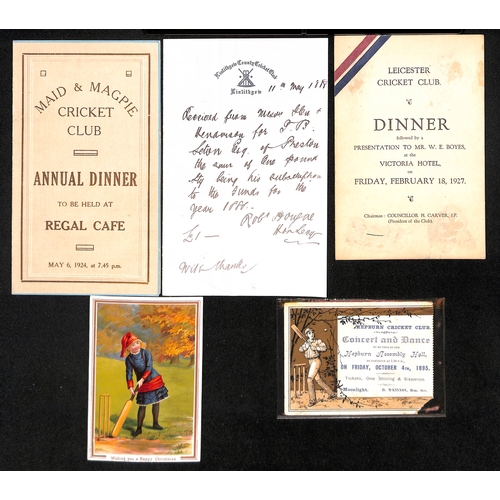 MAID & MAGPIE
CRICKET
CLUB
ANNUAL DINNER
TO BE HELD AT
REGAL CAFE
MAY 6, 1924, at 7.45 p.m.
Linlithgow County Cricket Club
Linlithgow
11th May 188
Received from Messrs
Henderson for J. P.
Esq. of Preston
the sum of One pound
Stg being his subscription
to the funds for the
year 1888.
Robt
£1 —
With thanks
LEICESTER
CRICKET CLUB.
DINNER
followed by a
PRESENTATION TO MR. W. E. BOYES,
at the
VICTORIA HOTEL,
on
FRIDAY, FEBRUARY 18, 1927.
Chairman: COUNCILLOR H. CARVER, J.P.
(President of the Club).
Wishing you a Happy Christmas
HEPBURN CRICKET CLUB.
Concert and Dance
Hepburn Assembly Hall,
ON FRIDAY, OCTOBER 4th, 1895.
Tickets, One Shilling & Sixpence.
Moonlight.